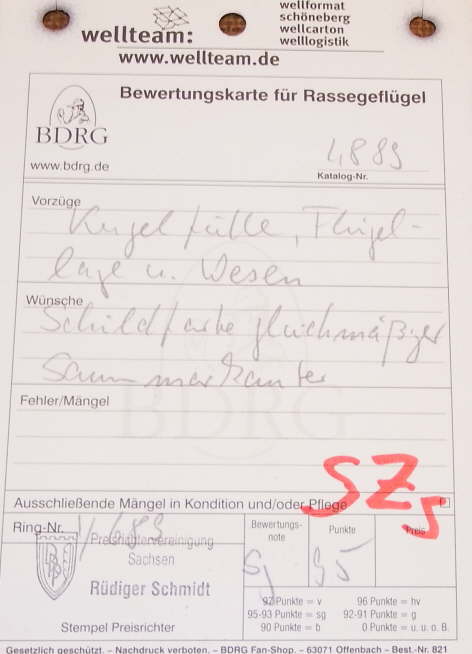 wellformat
schöneberg
wellcarton
welllogistik
wellteam:
www.wellteam.de
Bewertungskarte für Rassegeflügel
BDRG
www.bdrg.de
4889
Katalog-Nr.
Vorzüge
Kugelfülle, Flügel-
lage u. Wesen
Wünsche
Schildfarbe gleichmäßiger
Saum markanter
Fehler/Mängel
BDRG
SZ
Ausschließende Mängel in Kondition und/oder Pflege
Ring-Nr.
Preisrichtervereinigung
Sachsen
Rüdiger Schmidt
Stempel Preisrichter
Bewertungs-
note
Punkte
Preis
sg
95
97 Punkte = v
96 Punkte = hv
95-93 Punkte = sg
92-91 Punkte = g
90 Punkte = b
0 Punkte = u. u. o. B.
Gesetzlich geschützt. – Nachdruck verboten. – BDRG Fan-Shop. – 63071 Offenbach – Best.-Nr. 821